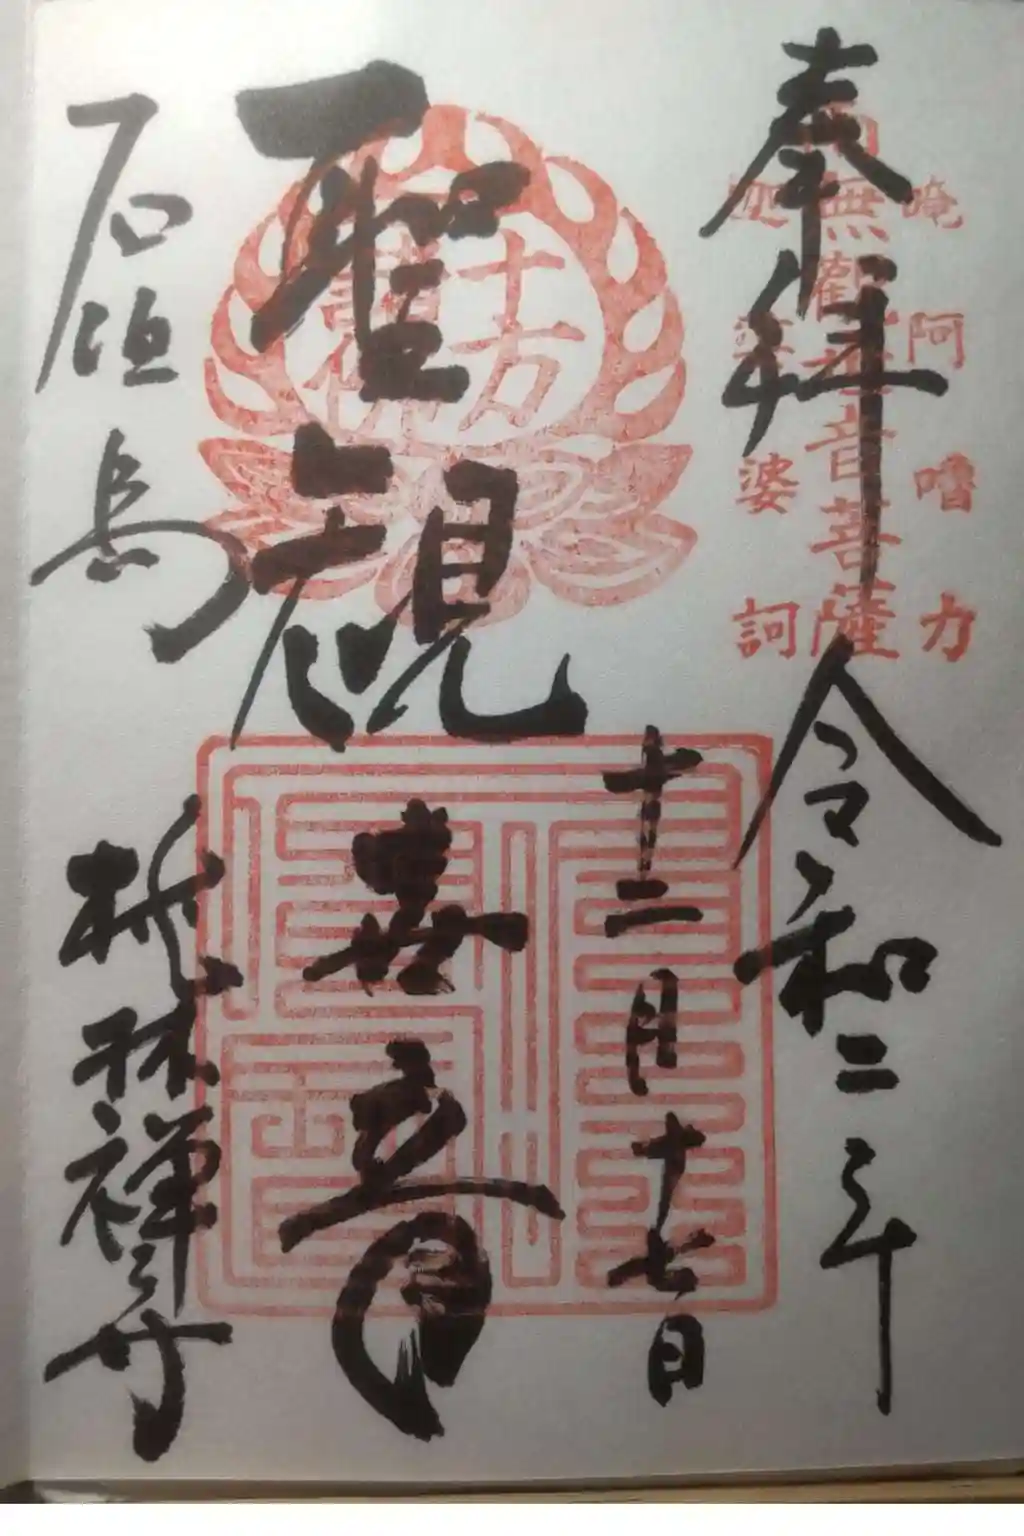 奉拝
令和二年
十二月十七日
聖観世音
石垣島
桃林禅寺
南無観世音菩薩
唵阿嚕力
迦婆婆訶
十方諸佛